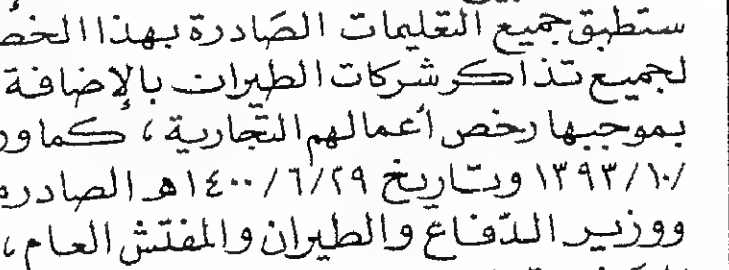 ستطبق جميع التعليمات الصادرة بهذا
لجميع تذاكر شركات الطيران بالإضافة
بموجبها رخص أعمالهم التجارية ، كما
/١٣٩٣/١٠ وتاريخ ١٤٠٠/٦/٢٩هـ
ووزير الدّفاع والطيران والمفتش العام ،